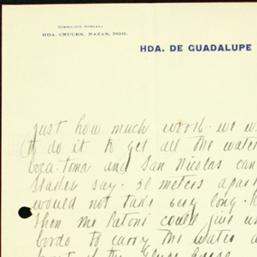 HDA. CRUCES, NAZAS, DGO.
HDA. DE GUADALUPE
just how much work we w
to do it to get all the water
Boca-toma and San Nicolas can
Stadem say. 50 meters apart
would not take very long. H
then me Patoni could give us
bordo to carry the water a